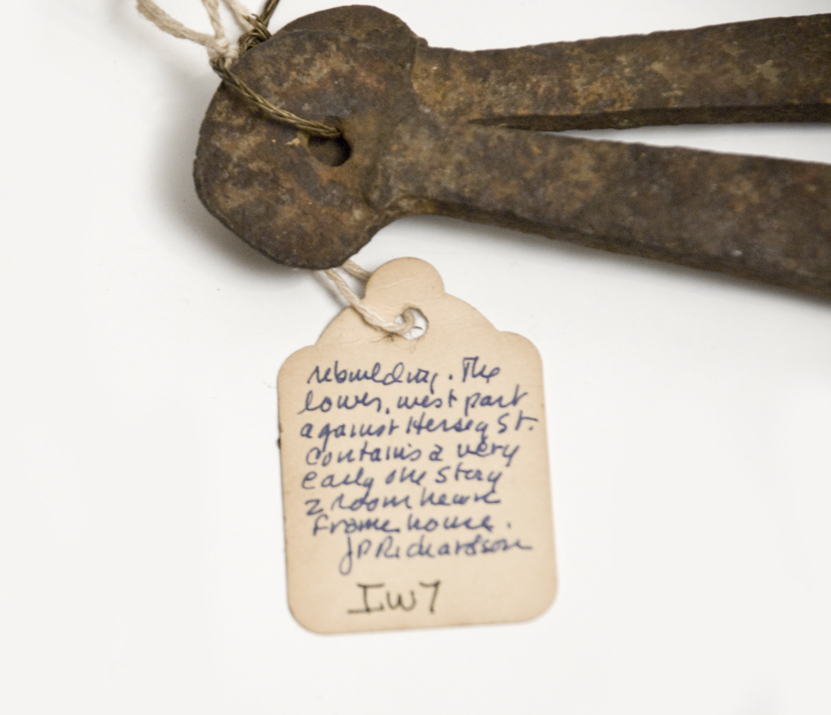 rebuilding. The
lower, west part
against Hersey St.
contains a very
early one story
2 room hewn
frame house.
JP Richardson
IW7